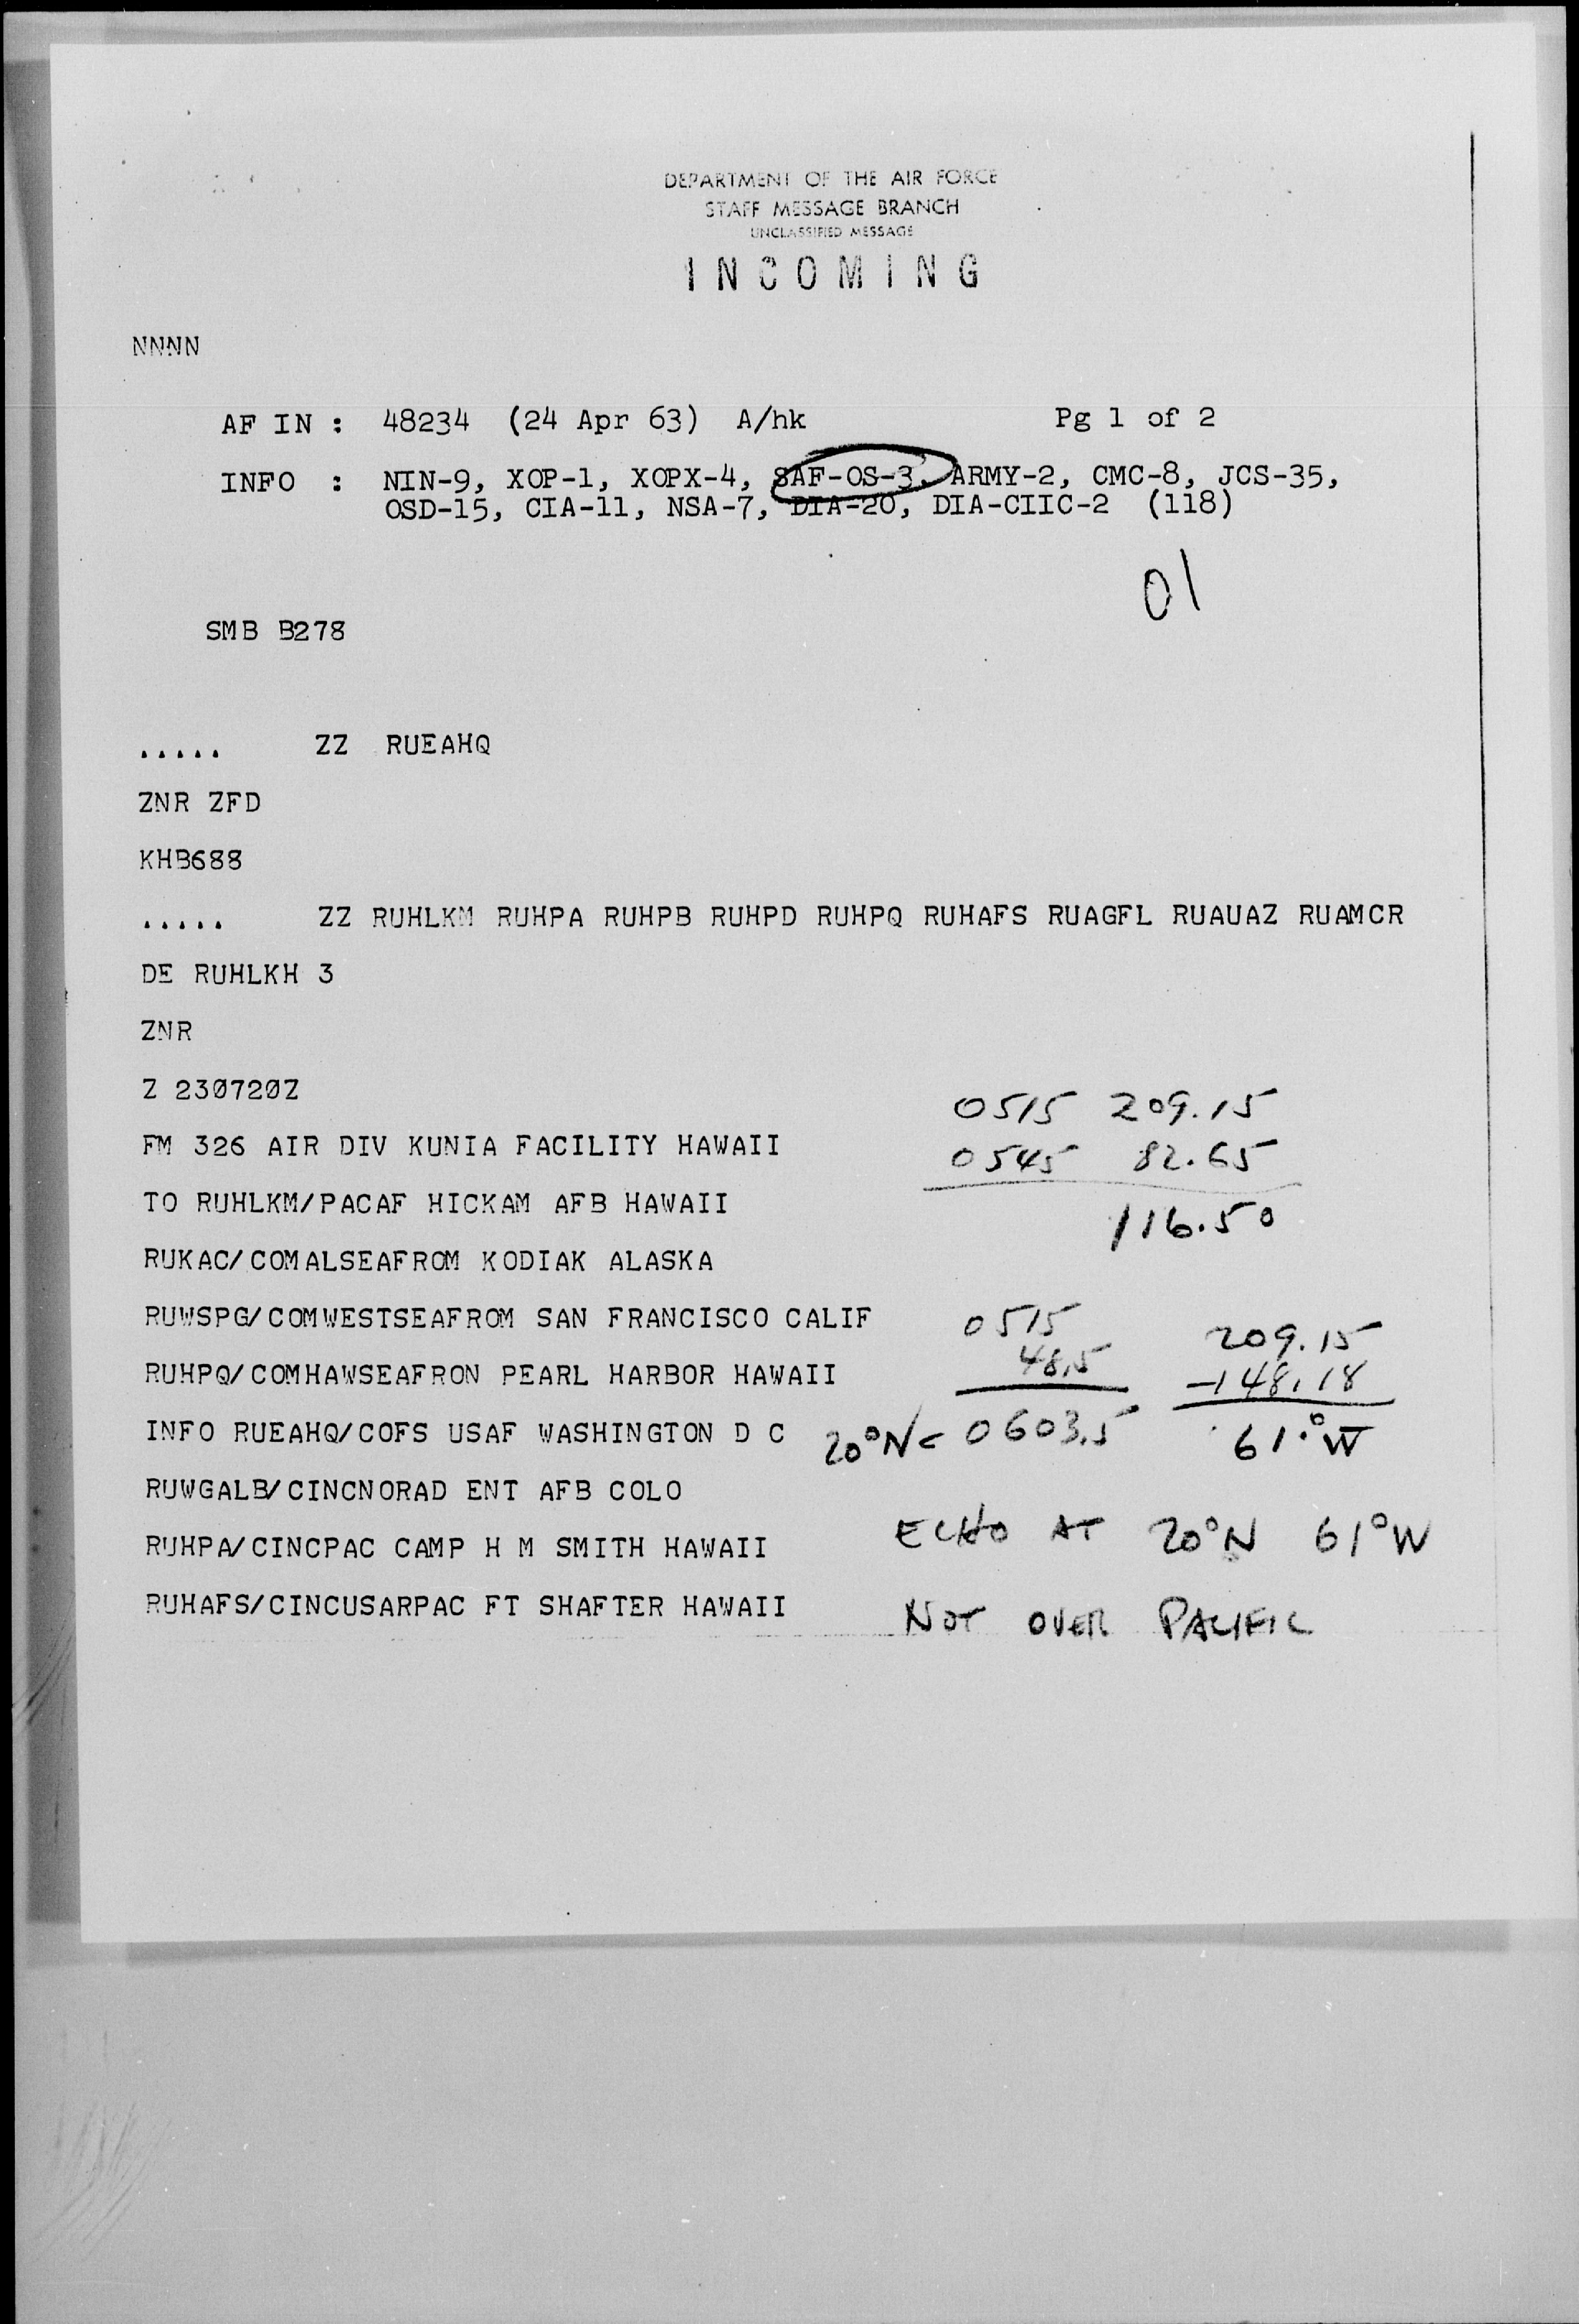 DEPARTMENT OF THE AIR FORCE
STAFF MESSAGE BRANCH
UNCLASSIFIED MESSAGE
INCOMING
NNNN
AF IN : 48234 (24 Apr 63) A/hk Pg 1 of 2
INFO : NIN-9, XOP-1, XOPX-4, SAF-OS-3, ARMY-2, CMC-8, JCS-35,
OSD-15, CIA-11, NSA-7, DIA-20, DIA-CIIC-2 (118)
01
SMB B278
..... ZZ RUEAHQ
ZNR ZFD
KHB688
..... ZZ RUHLKM RUHPA RUHPB RUHPD RUHPQ RUHAFS RUAGFL RUAUAZ RUAMCR
DE RUHLKH 3
ZNR
Z 230720Z
0515 209.15
FM 326 AIR DIV KUNIA FACILITY HAWAII
0545 82.65
TO RUHLKM/PACAF HICKAM AFB HAWAII
116.50
RUKAC/COMALSEAFROM KODIAK ALASKA
RUWSPG/COMWESTSEAFROM SAN FRANCISCO CALIF
0515 209.15
RUHPQ/COMHAWSEAFRON PEARL HARBOR HAWAII
48.5 -148.18
INFO RUEAHQ/COFS USAF WASHINGTON D C
20°N< 0603.5 61.°W
RUWGALB/CINCNORAD ENT AFB COLO
RUHPA/CINCPAC CAMP H M SMITH HAWAII
ECHO AT 20°N 61°W
RUHAFS/CINCUSARPAC FT SHAFTER HAWAII
NOT OVER PACIFIC